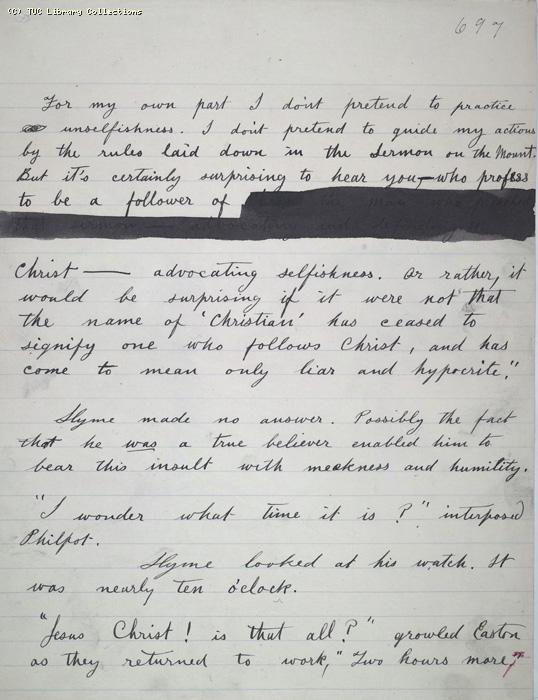 (C) TUC Library Collections
697
For my own part I don't pretend to practice
unselfishness. I don't pretend to guide my actions
by the rules laid down in the Sermon on the Mount.
But it's certainly surprising to hear you,—who profess
to be a follower of
Christ — advocating selfishness. Or rather, it
would be surprising if it were not that
the name of 'Christian' has ceased to
signify one who follows Christ, and has
come to mean only liar and hypocrite."
Slyme made no answer. Possibly the fact
that he was a true believer enabled him to
bear this insult with meekness and humility.
"I wonder what time it is?" interposed
Philpot.
Slyme looked at his watch. It
was nearly ten o'clock.
"Jesus Christ! is that all?" growled Easton
as they returned to work, "Two hours more,"